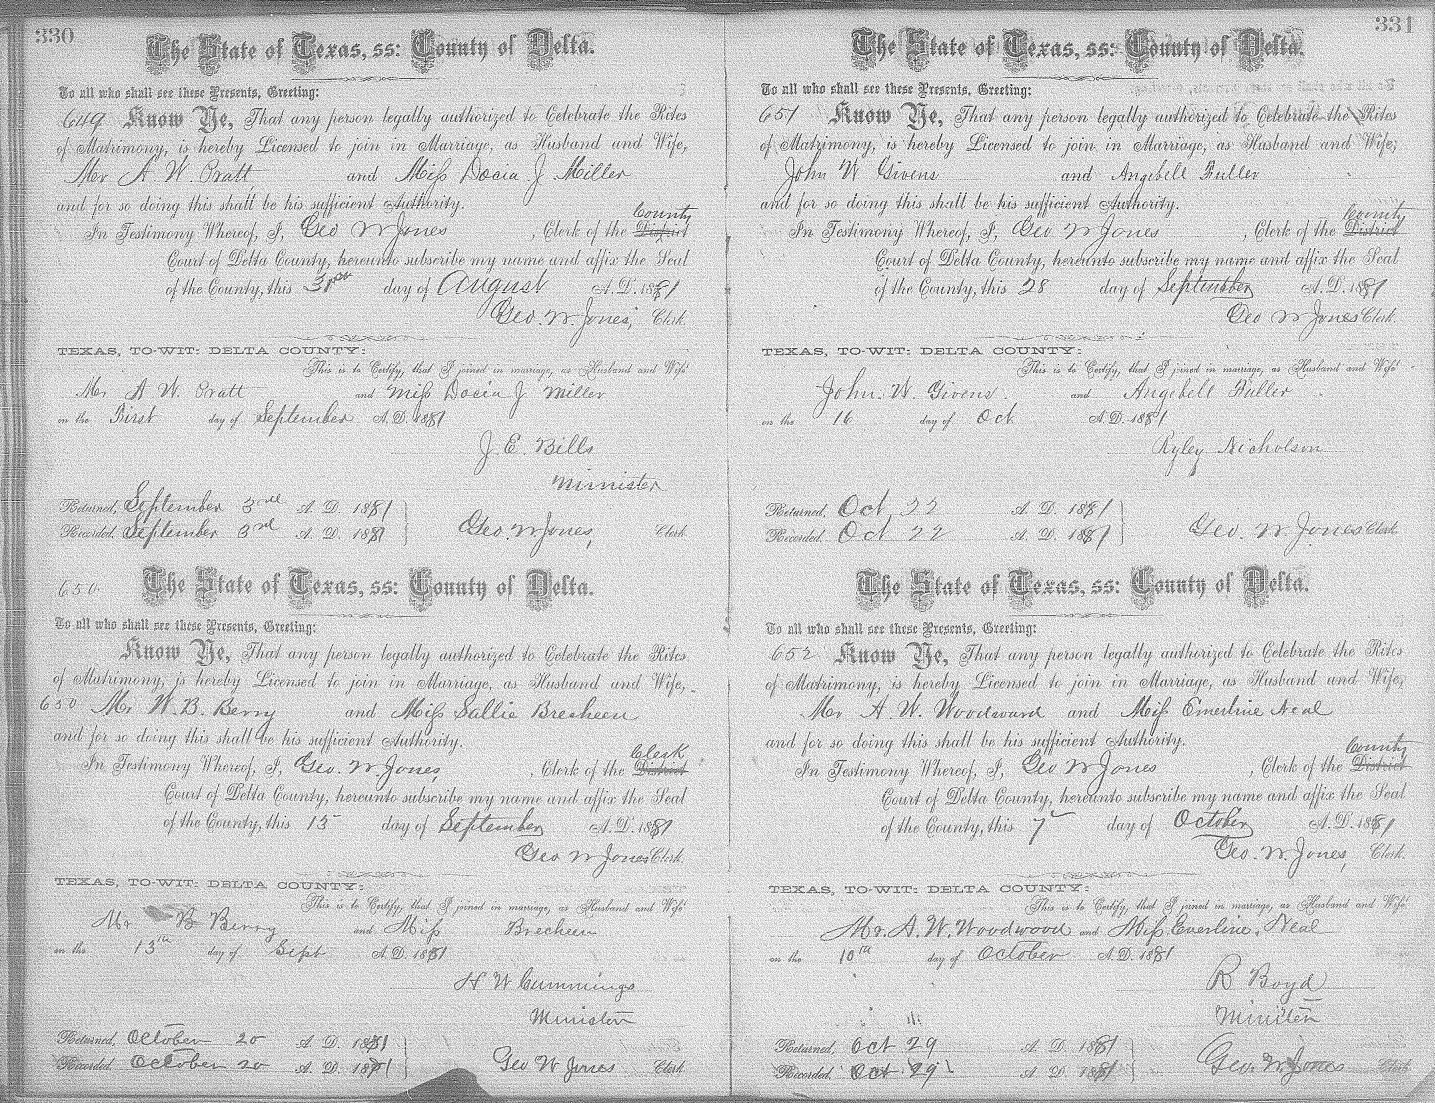 330
The State of Texas, ss: County of Delta.
To all who shall see these Presents, Greeting:
649 Know Ye, That any person legally authorized to Celebrate the Rites
of Matrimony, is hereby Licensed to join in Marriage, as Husband and Wife,
Mr A W. Pratt and Miss Docia J Miller
and for so doing this shall be his sufficient Authority.
County
In Testimony Whereof, I, Geo W Jones, Clerk of the District
Court of Delta County, hereunto subscribe my name and affix the Seal
of the County, this day of August A.D. 1881
Geo. W. Jones, Clerk.
TEXAS, TO-WIT: DELTA COUNTY:
This is to Certify, that I joined in marriage, as Husband and Wife
Mr A W Pratt and Miss Docia J Miller
on the First day of September A.D. 1881
J. E. Bills
Minister
Returned, September 3rd A. D. 1881
Recorded, September 3rd A. D. 1881 Geo W Jones, Clerk
650. The State of Texas, ss: County of Delta.
To all who shall see these Presents, Greeting:
Know Ye, That any person legally authorized to Celebrate the Rites
of Matrimony, is hereby Licensed to join in Marriage, as Husband and Wife,
650 Mr W. B. Berry and Miss Sallie Brecheen
and for so doing this shall be his sufficient Authority.
Clerk
In Testimony Whereof, I, Geo. W. Jones, Clerk of the District
Court of Delta County, hereunto subscribe my name and affix the Seal
of the County, this 13 day of September A.D. 1881
Geo W Jones Clerk.
TEXAS, TO-WIT: DELTA COUNTY:
This is to Certify, that I joined in marriage, as Husband and Wife
Mr B Berry and Miss Brecheen
on the 13th day of Sept A.D. 1881
H W Cummings
Minister
Returned, October 20 A. D. 1881
Recorded, October 20 A. D. 1881 Geo W Jones Clerk
331
The State of Texas, ss: County of Delta.
To all who shall see these Presents, Greeting:
651 Know Ye, That any person legally authorized to Celebrate the Rites
of Matrimony, is hereby Licensed to join in Marriage, as Husband and Wife;
John W Givens and Angebell Fuller
and for so doing this shall be his sufficient Authority.
County
In Testimony Whereof, I, Geo W Jones, Clerk of the District
Court of Delta County, hereunto subscribe my name and affix the Seal
of the County, this 28 day of September A.D. 1881
Geo W Jones Clerk.
TEXAS, TO-WIT: DELTA COUNTY:
This is to Certify, that I joined in marriage, as Husband and Wife
John. W. Givens. and Angebell Fuller
on the 16 day of Oct A.D. 1881
Ryley Nicholson
Returned, Oct 22 A. D. 1881
Recorded, Oct 22 A. D. 1881 Geo. W Jones Clerk
The State of Texas, ss: County of Delta.
To all who shall see these Presents, Greeting:
652 Know Ye, That any person legally authorized to Celebrate the Rites
of Matrimony, is hereby Licensed to join in Marriage, as Husband and Wife,
Mr A. W. Woodward and Miss Emerline Neal
and for so doing this shall be his sufficient Authority.
County
In Testimony Whereof, I, Geo W Jones, Clerk of the District
Court of Delta County, hereunto subscribe my name and affix the Seal
of the County, this 7 day of October A.D. 1881
Geo. W. Jones, Clerk.
TEXAS, TO-WIT: DELTA COUNTY:
This is to Certify, that I joined in marriage, as Husband and Wife
Mr. A. W. Woodwood and Miss Everline. Neal
on the 10th day of October A.D. 1881
R Boyd
Minister
Returned, Oct 29 A. D. 1881
Recorded, Oct 29 A. D. 1881 Geo. W Jones Clerk